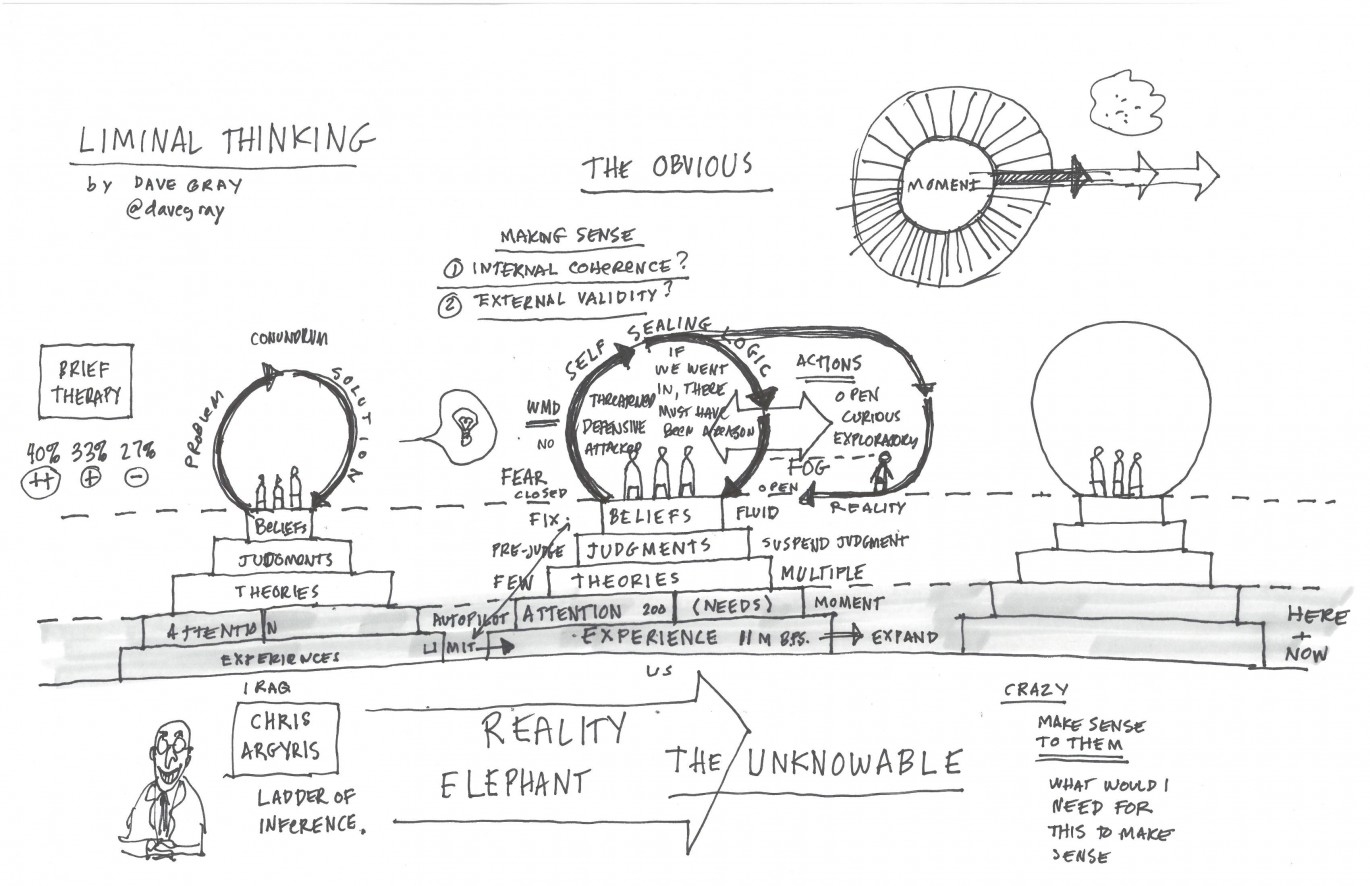 LIMINAL THINKING
by DAVE GRAY
@davegray
THE OBVIOUS
MOMENT
MAKING SENSE
① INTERNAL COHERENCE?
② EXTERNAL VALIDITY?
BRIEF
THERAPY
40% 33% 27%
++ + -
CONUNDRUM
PROBLEM
SOLUTION
BELIEFS
JUDGMONTS
THEORIES
ATTENTION
EXPERIENCES
WMD
NO
SELF SEALING LOGIC
THREATENED
DEFENSIVE
ATTACKED
IF
WE WENT
IN, THERE
MUST HAVE
BEEN A REASON
ACTIONS
OPEN
CURIOUS
EXPLORATORY
FOG
OPEN
REALITY
FEAR
CLOSED
FIX.
BELIEFS
FLUID
PRE-JUDGE
JUDGMENTS
SUSPEND JUDGMENT
FEW
THEORIES
MULTIPLE
AUTOPILOT
ATTENTION 200
(NEEDS)
MOMENT
LIMIT
EXPERIENCE 11 M B.P.S.
EXPAND
HERE
+
NOW
US
IRAQ
CHRIS
ARGYRIS
LADDER OF
INFERENCE.
REALITY
ELEPHANT
THE UNKNOWABLE
CRAZY
MAKE SENSE
TO THEM
WHAT WOULD I
NEED FOR
THIS TO MAKE
SENSE